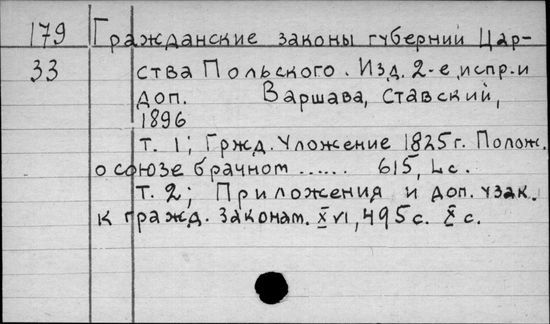 179 Гражданские законы губерний Цар-
33 ства Польского. Изд. 2-е, испр. и
доп. Варшава, Ставский,
1896
т. 1; Гржд. Уложение 1825 г. Полож.
о союзе брачном ...... 615, L с.
Т. 2; Приложения и доп. узак.
к гражд. законам. XVI, 495 с. X с.